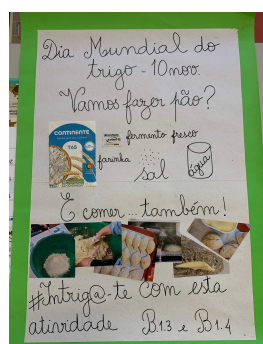 Dia Mundial do
trigo - 10 nov.
Vamos fazer pão?
CONTINENTE
T65
fermento fresco
farinha
sal
água
E comer... também!
#Intrig@-te com esta
atividade B1.3 e B1.4